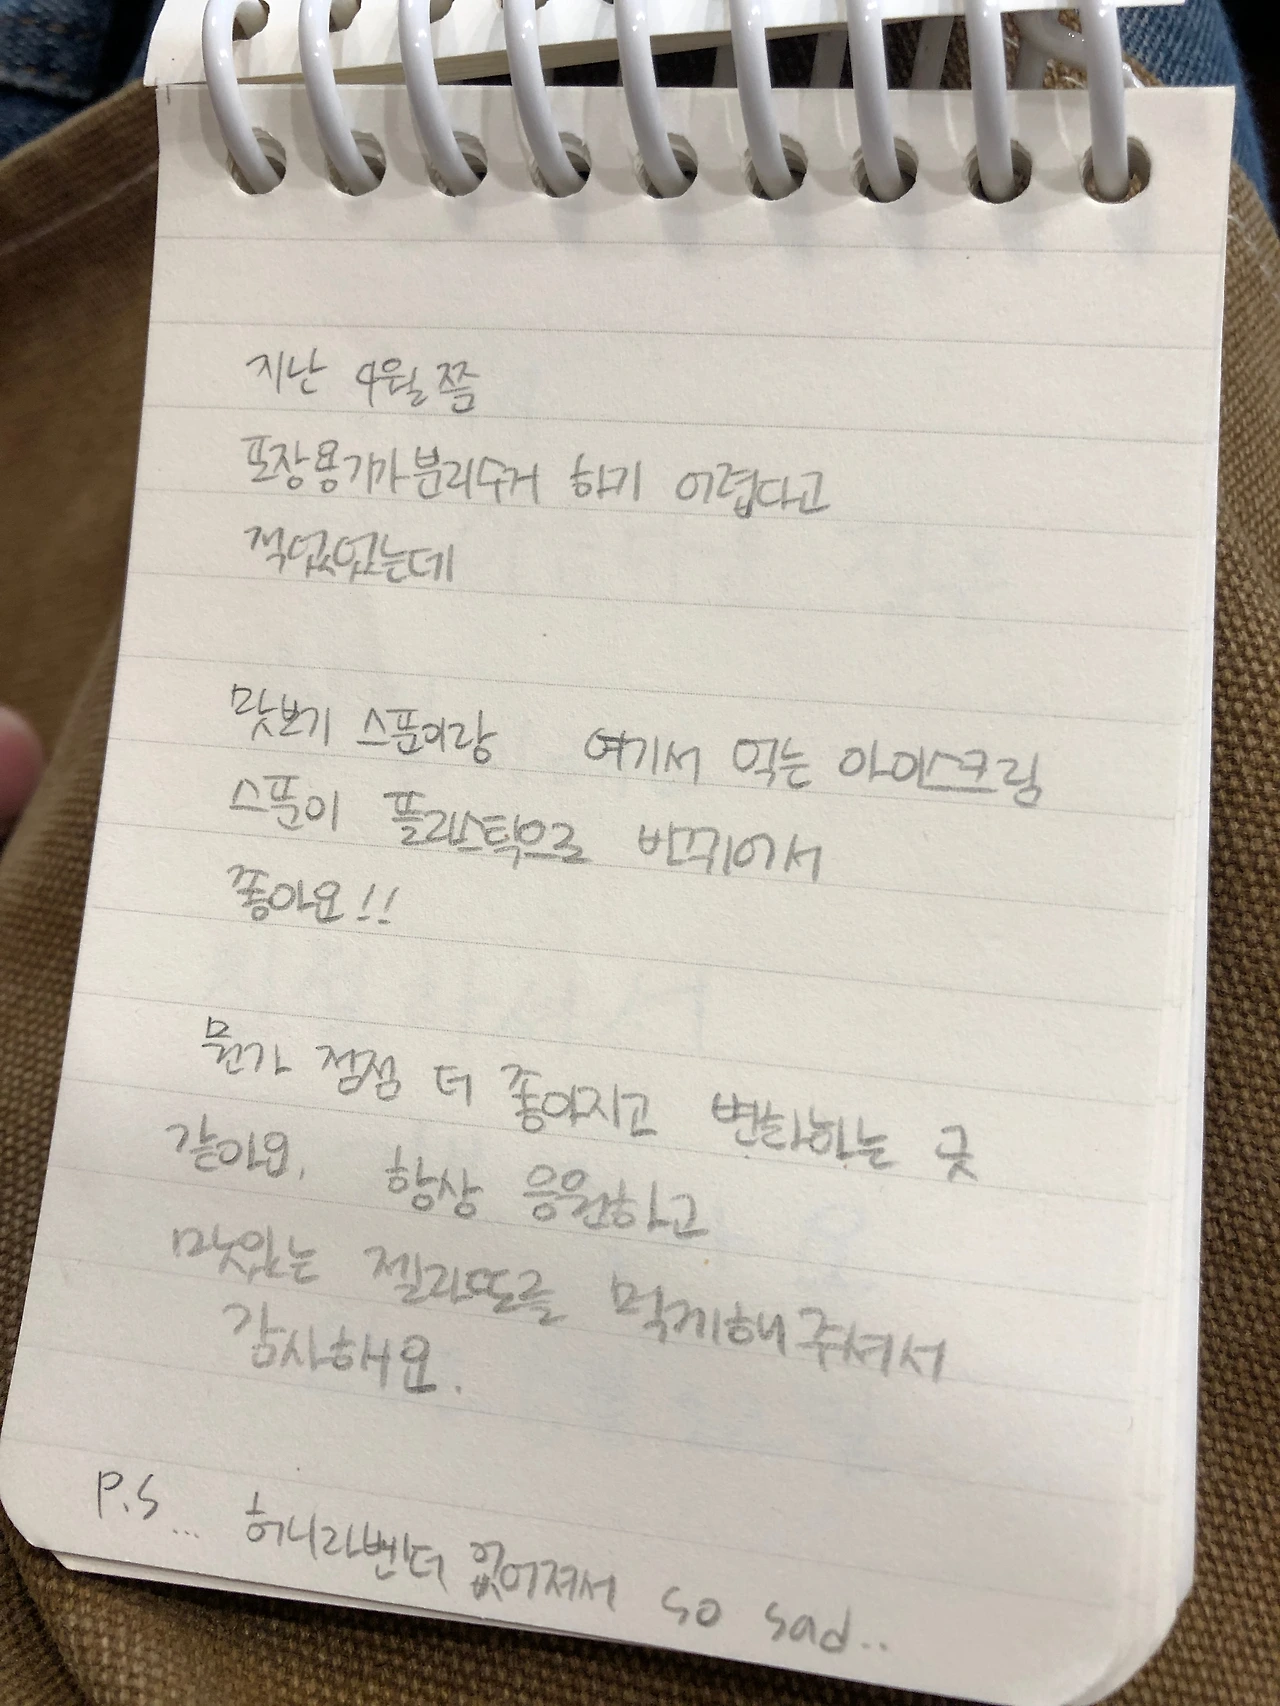 지난 4월쯤
포장용기가 분리수거 하기 어렵다고
적었었는데
맛보기 스푼이랑 여기서 먹는 아이스크림
스푼이 플라스틱으로 바뀌어서
좋아요!!
뭔가 점점 더 좋아지고 변화하는 곳
같아요. 항상 응원하고
맛있는 젤라또를 먹게해주셔서
감사해요.
P.S... 허니라벤더 없어져서 so sad..